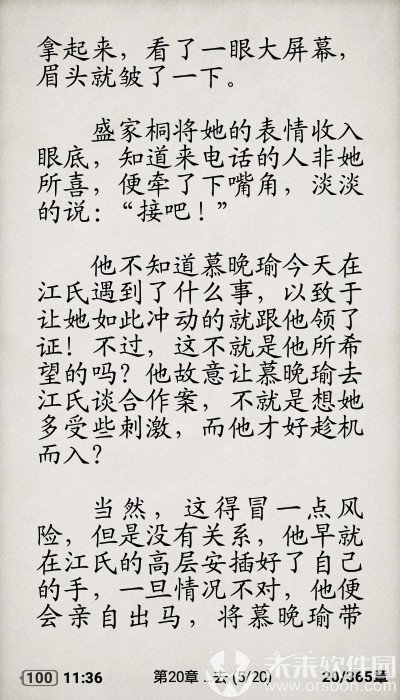 拿起来，看了一眼大屏幕，
眉头就皱了一下。
盛家桐将她的表情收入
眼底，知道来电话的人非她
所喜，便牵了下嘴角，淡淡
的说：“接吧！”
他不知道慕晚瑜今天在
江氏遇到了什么事，以致于
让她如此冲动的就跟他领了
证！不过，这不就是他所希
望的吗？他故意让慕晚瑜去
江氏谈合作案，不就是想她
多受些刺激，而他才好趁机
而入？
当然，这得冒一点风
险，但是没有关系，他早就
在江氏的高层安插好了自己
的手，一旦情况不对，他便
会亲自出马，将慕晚瑜带
100 11:36 第20章...去 (5/20) 20/365章
未来软件园
www.orsoon.com